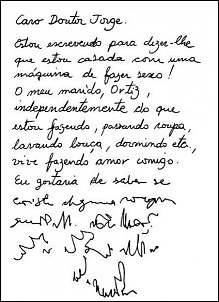 Caro Doutor Jorge.
Estou escrevendo para dizer-lhe
que estou casada com uma
máquina de fazer sexo!
O meu marido, Ortiz,
independentemente do que
estou fazendo, passando roupa,
lavando louça, dormindo etc.,
vive fazendo amor comigo.
Eu gostaria de saber se
existe alguma